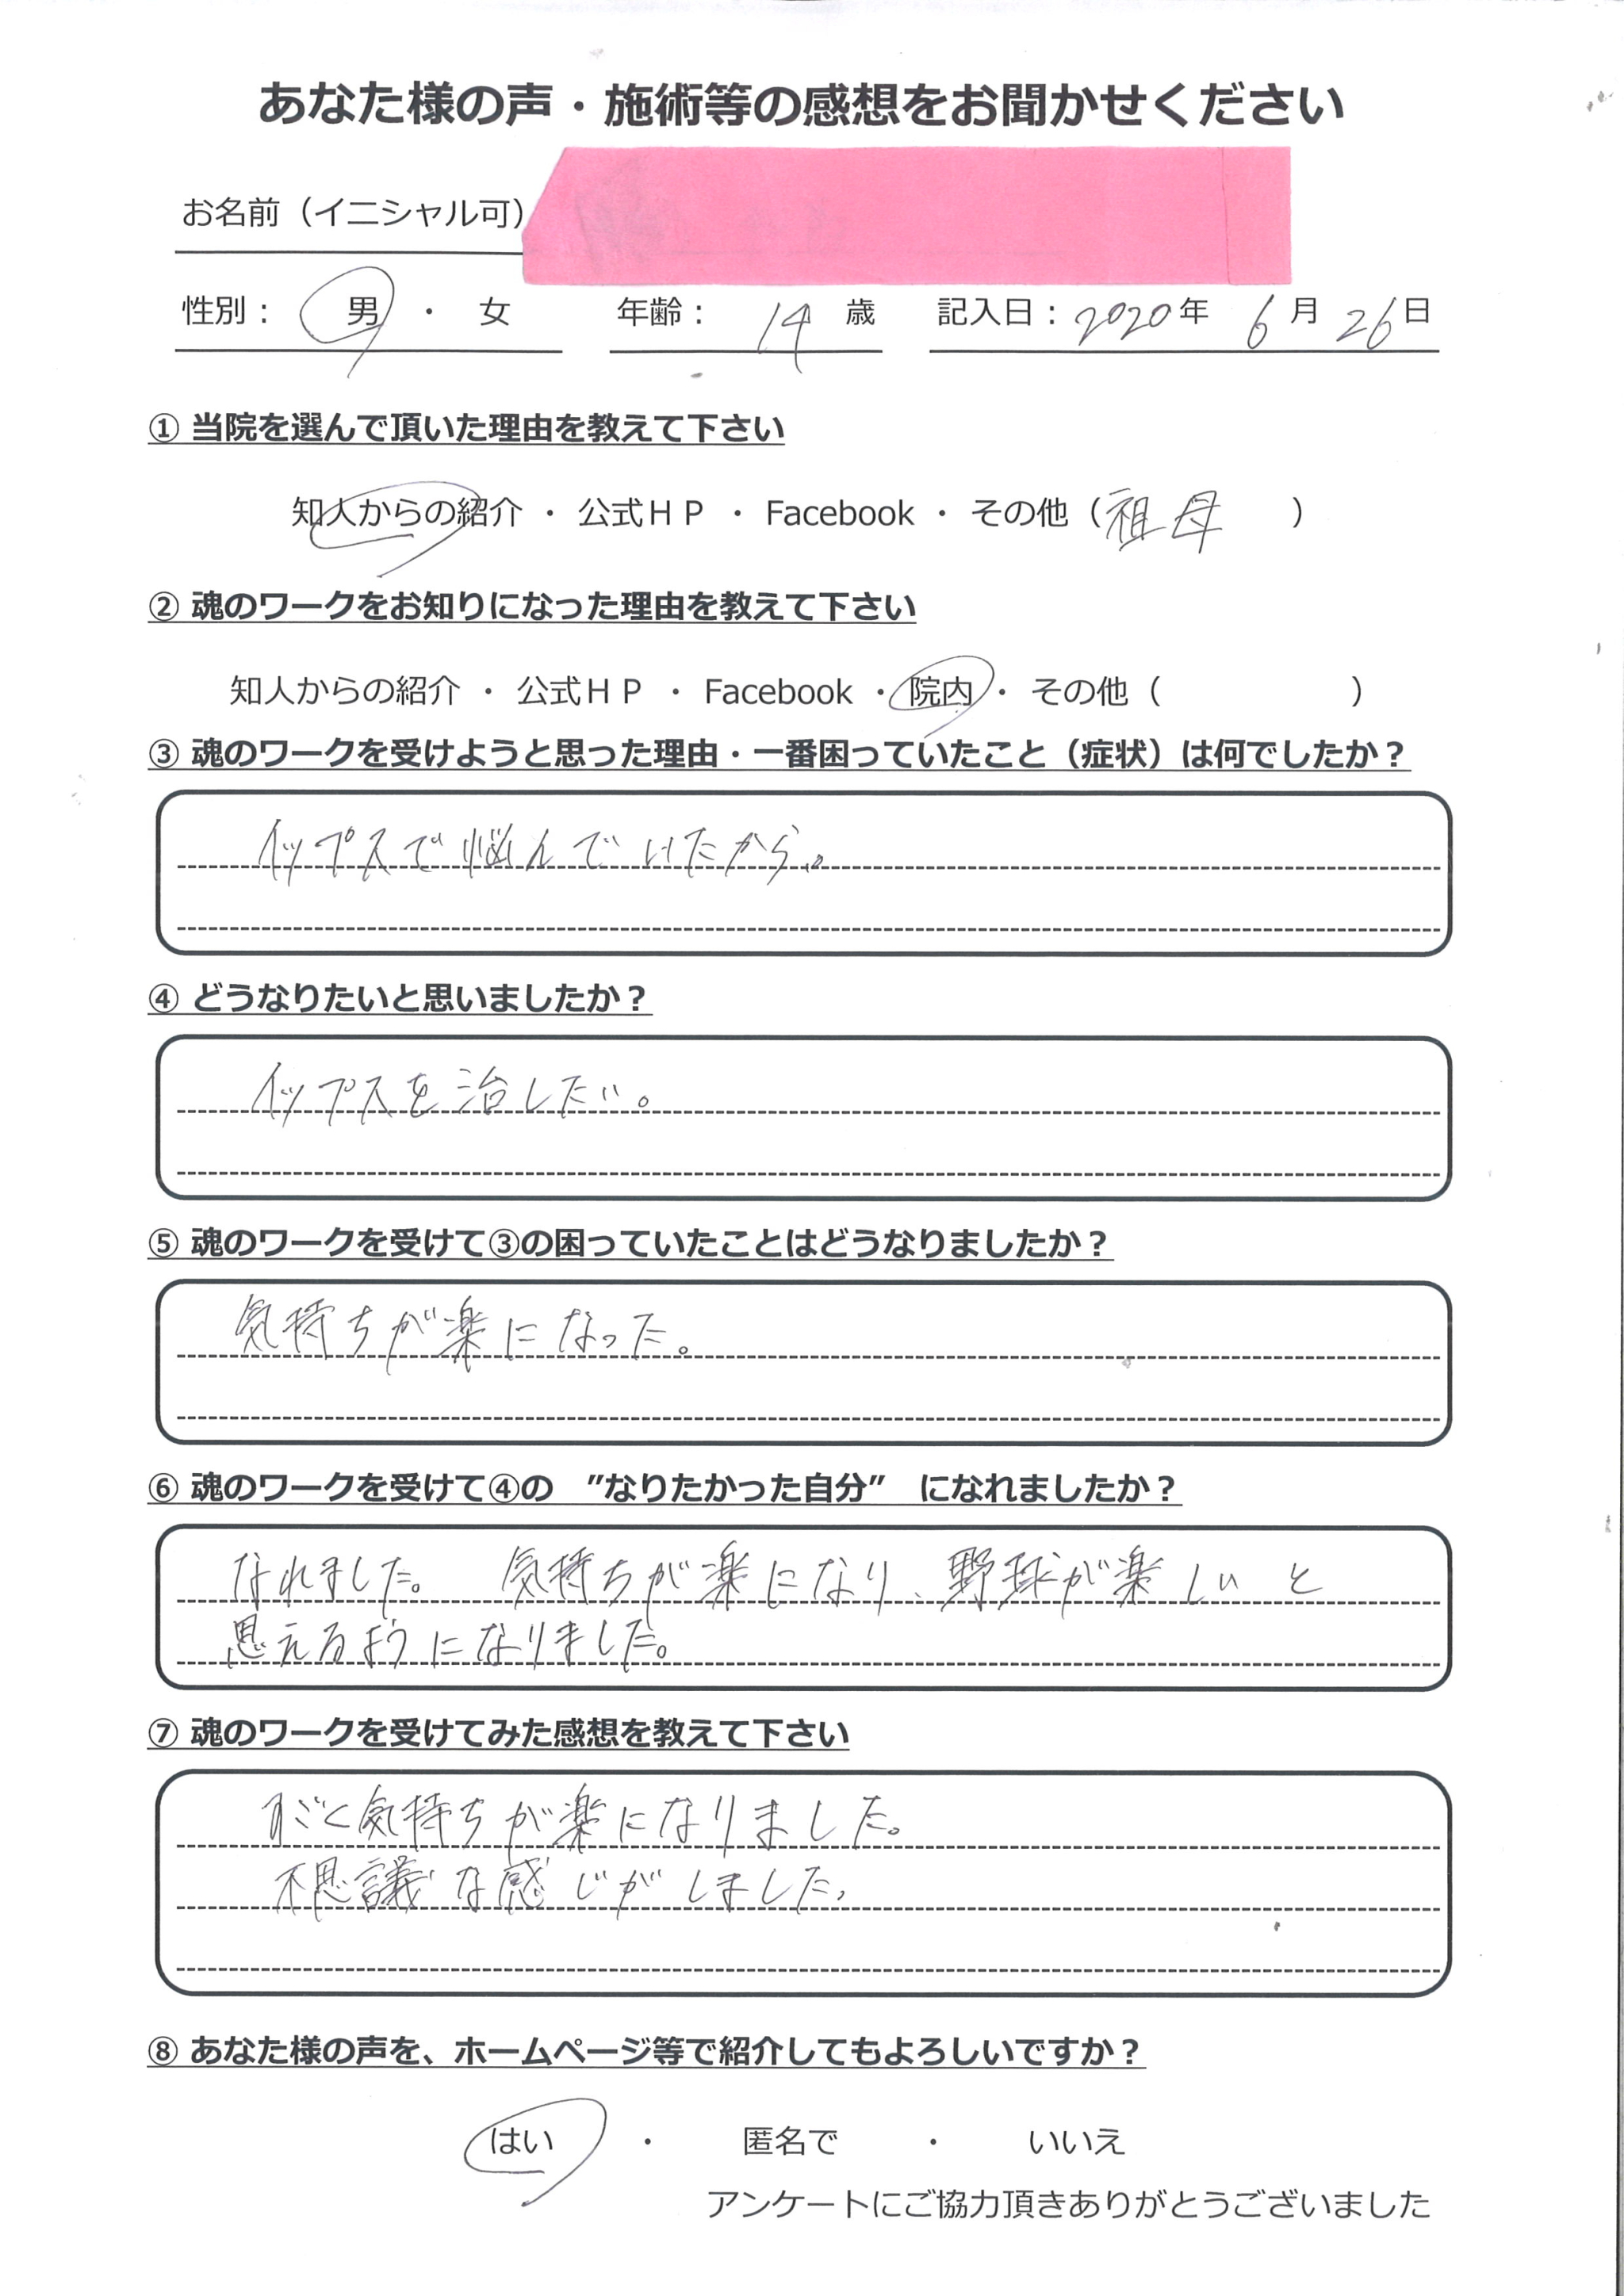 あなた様の声・施術等の感想をお聞かせください
お名前（イニシャル可）
性別： 男 ・ 女 年齢： 14 歳 記入日：2020年 6月 26日
① 当院を選んで頂いた理由を教えて下さい
知人からの紹介 ・ 公式ＨＰ ・ Facebook ・ その他（祖母 ）
② 魂のワークをお知りになった理由を教えて下さい
知人からの紹介 ・ 公式ＨＰ ・ Facebook ・ 院内 ・ その他（ ）
③ 魂のワークを受けようと思った理由・一番困っていたこと（症状）は何でしたか？
イップスで悩んでいたから。
④ どうなりたいと思いましたか？
イップスを治したい。
⑤ 魂のワークを受けて③の困っていたことはどうなりましたか？
気持ちが楽になった。
⑥ 魂のワークを受けて④の ”なりたかった自分” になれましたか？
なれました。 気持ちが楽になり、野球が楽しいと
思えるようになりました。
⑦ 魂のワークを受けてみた感想を教えて下さい
すごく気持ちが楽になりました。
不思議な感じがしました。
⑧ あなた様の声を、ホームページ等で紹介してもよろしいですか？
はい ・ 匿名で ・ いいえ
アンケートにご協力頂きありがとうございました